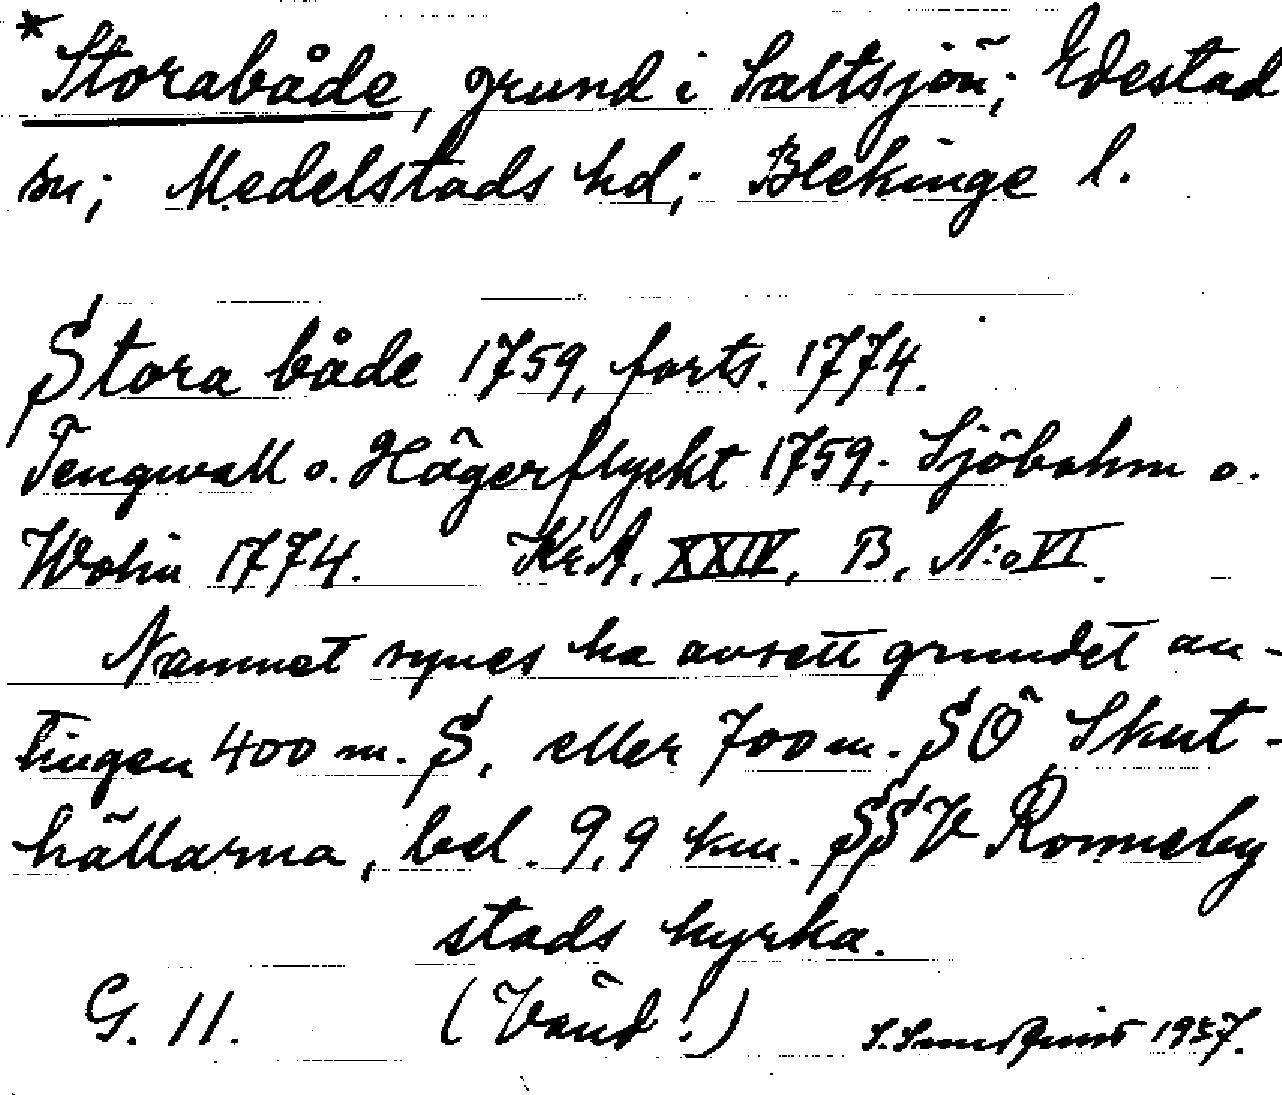 *Storabåde, grund i Saltsjön; Edestad
sn; Medelstads hd; Blekinge l.
Stora både 1759, forts. 1774.
Tengwall o. Hägerflyckt 1759; Sjöbohm o.
Wohin 1774. Kr.A. XXIV, B, N:o VI.
Namnet synes ha avsett grundet an-
tingen 400 m. S, eller 700 m. SÖ Skut-
hällarna, bel. 9,9 km. SSV Ronneby
stads kyrka.
G. 11. (Vänd!) 1937.